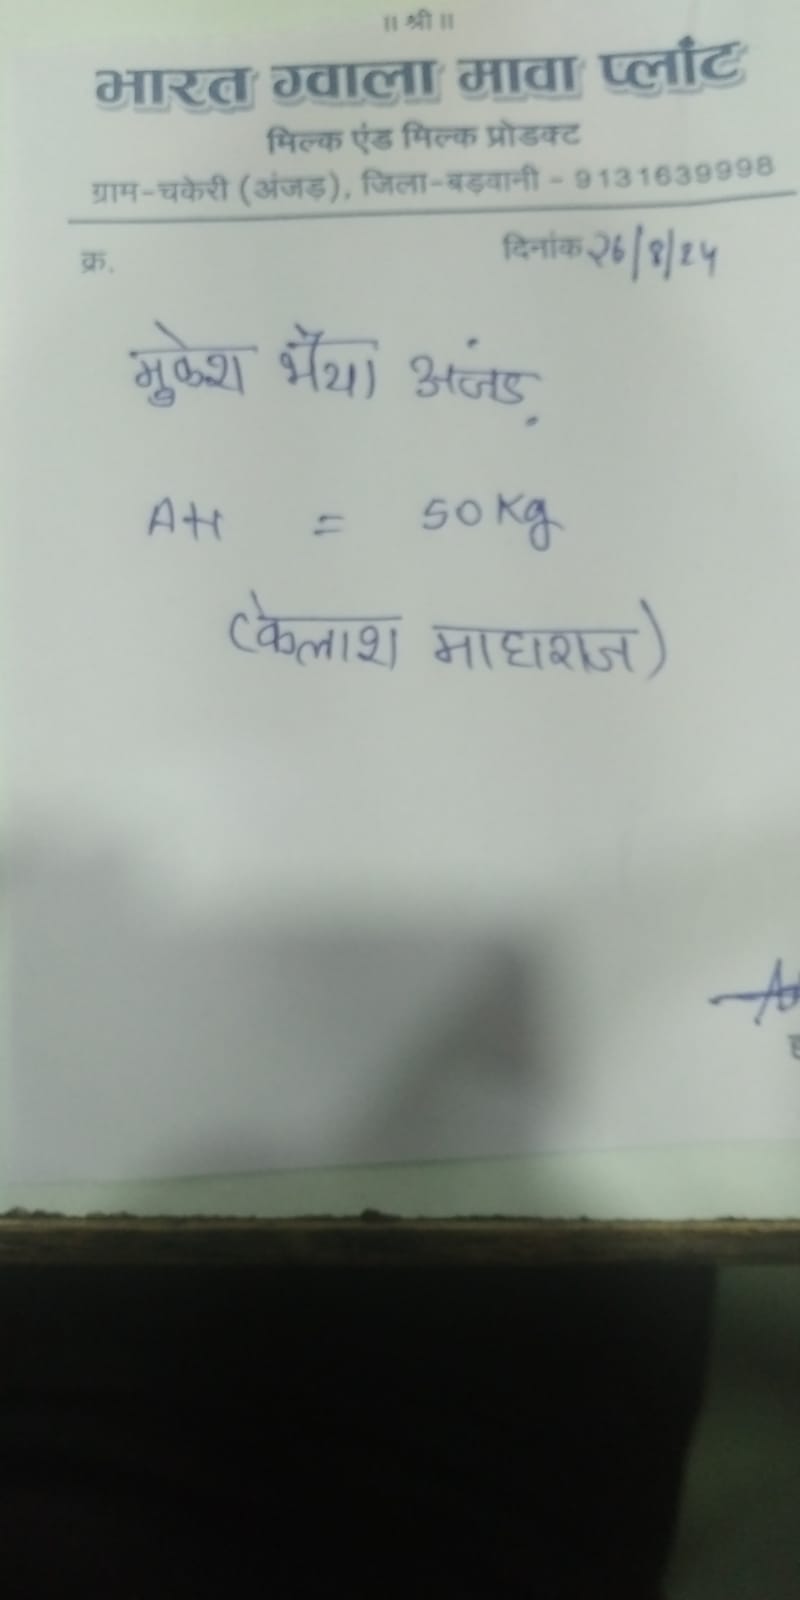 ॥ श्री ॥
भारत ग्वाला मावा प्लांट
मिल्क एंड मिल्क प्रोडक्ट
ग्राम-चकेरी (अंजड़), जिला-बड़वानी - 9131639998
क्र. दिनांक 26/8/24
मुकेश भैया अंजड़
AH = 50 Kg
(केलाश माहाराज)